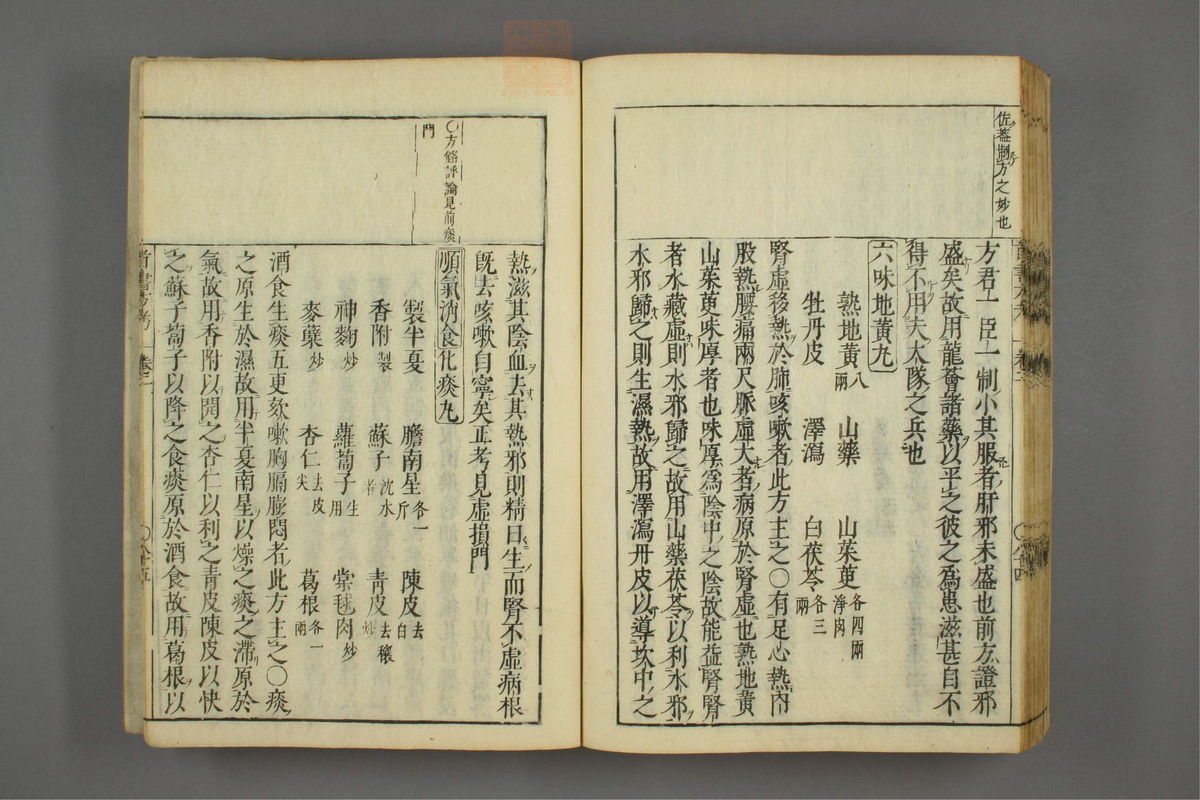 佐蓋制方之妙也
方君一臣一制小其服者肝邪未盛也前方證邪
盛矣故用龍薈諸藥以平之彼之爲患滋甚自不
得不用夫大隊之兵也
六味地黃丸
熟地黃八兩 山藥 山茱萸各四兩淨肉
牡丹皮 澤瀉 白茯苓各三兩
腎虛移熱於肺咳嗽者此方主之○有足心熱內
股熱腰痛兩尺脈虛大者病原於腎虛也熟地黃
山茱萸味厚者也味厚爲陰中之陰故能益腎腎
者水藏虛則水邪歸之故用山藥茯苓以利水邪
水邪歸之則生濕熱故用澤瀉丹皮以導坎中之
八十四
○方畧評論見前痰
門
熱滋其陰血去其熱邪則精日生而腎不虛病根
旣去咳嗽自寧矣正考見虛損門
順氣消食化痰丸
製半夏 膽南星各一斤 陳皮去白
香附製 蘇子沈水者 青皮去穰炒
神麴炒 蘿蔔子生用 棠毬肉炒
麥蘗炒 杏仁去皮尖 葛根各一兩
酒食生痰五更欬嗽胸膈膨悶者此方主之○痰
之原生於濕故用半夏南星以燥之痰之滯原於
氣故用香附以開之杏仁以利之青皮陳皮以快
之蘇子蔔子以降之食痰原於酒食故用葛根以
八十五